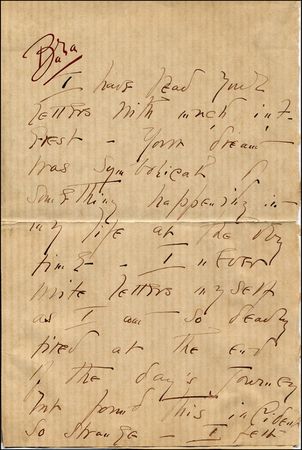 I have read your
letters with much inter-
rest – Your dream
was symbolical of
something happening in
my life at the very
time – I never
write letters myself
as I am so deadly
tired at the end
of the day's journey
but found this incident
so strange – I felt